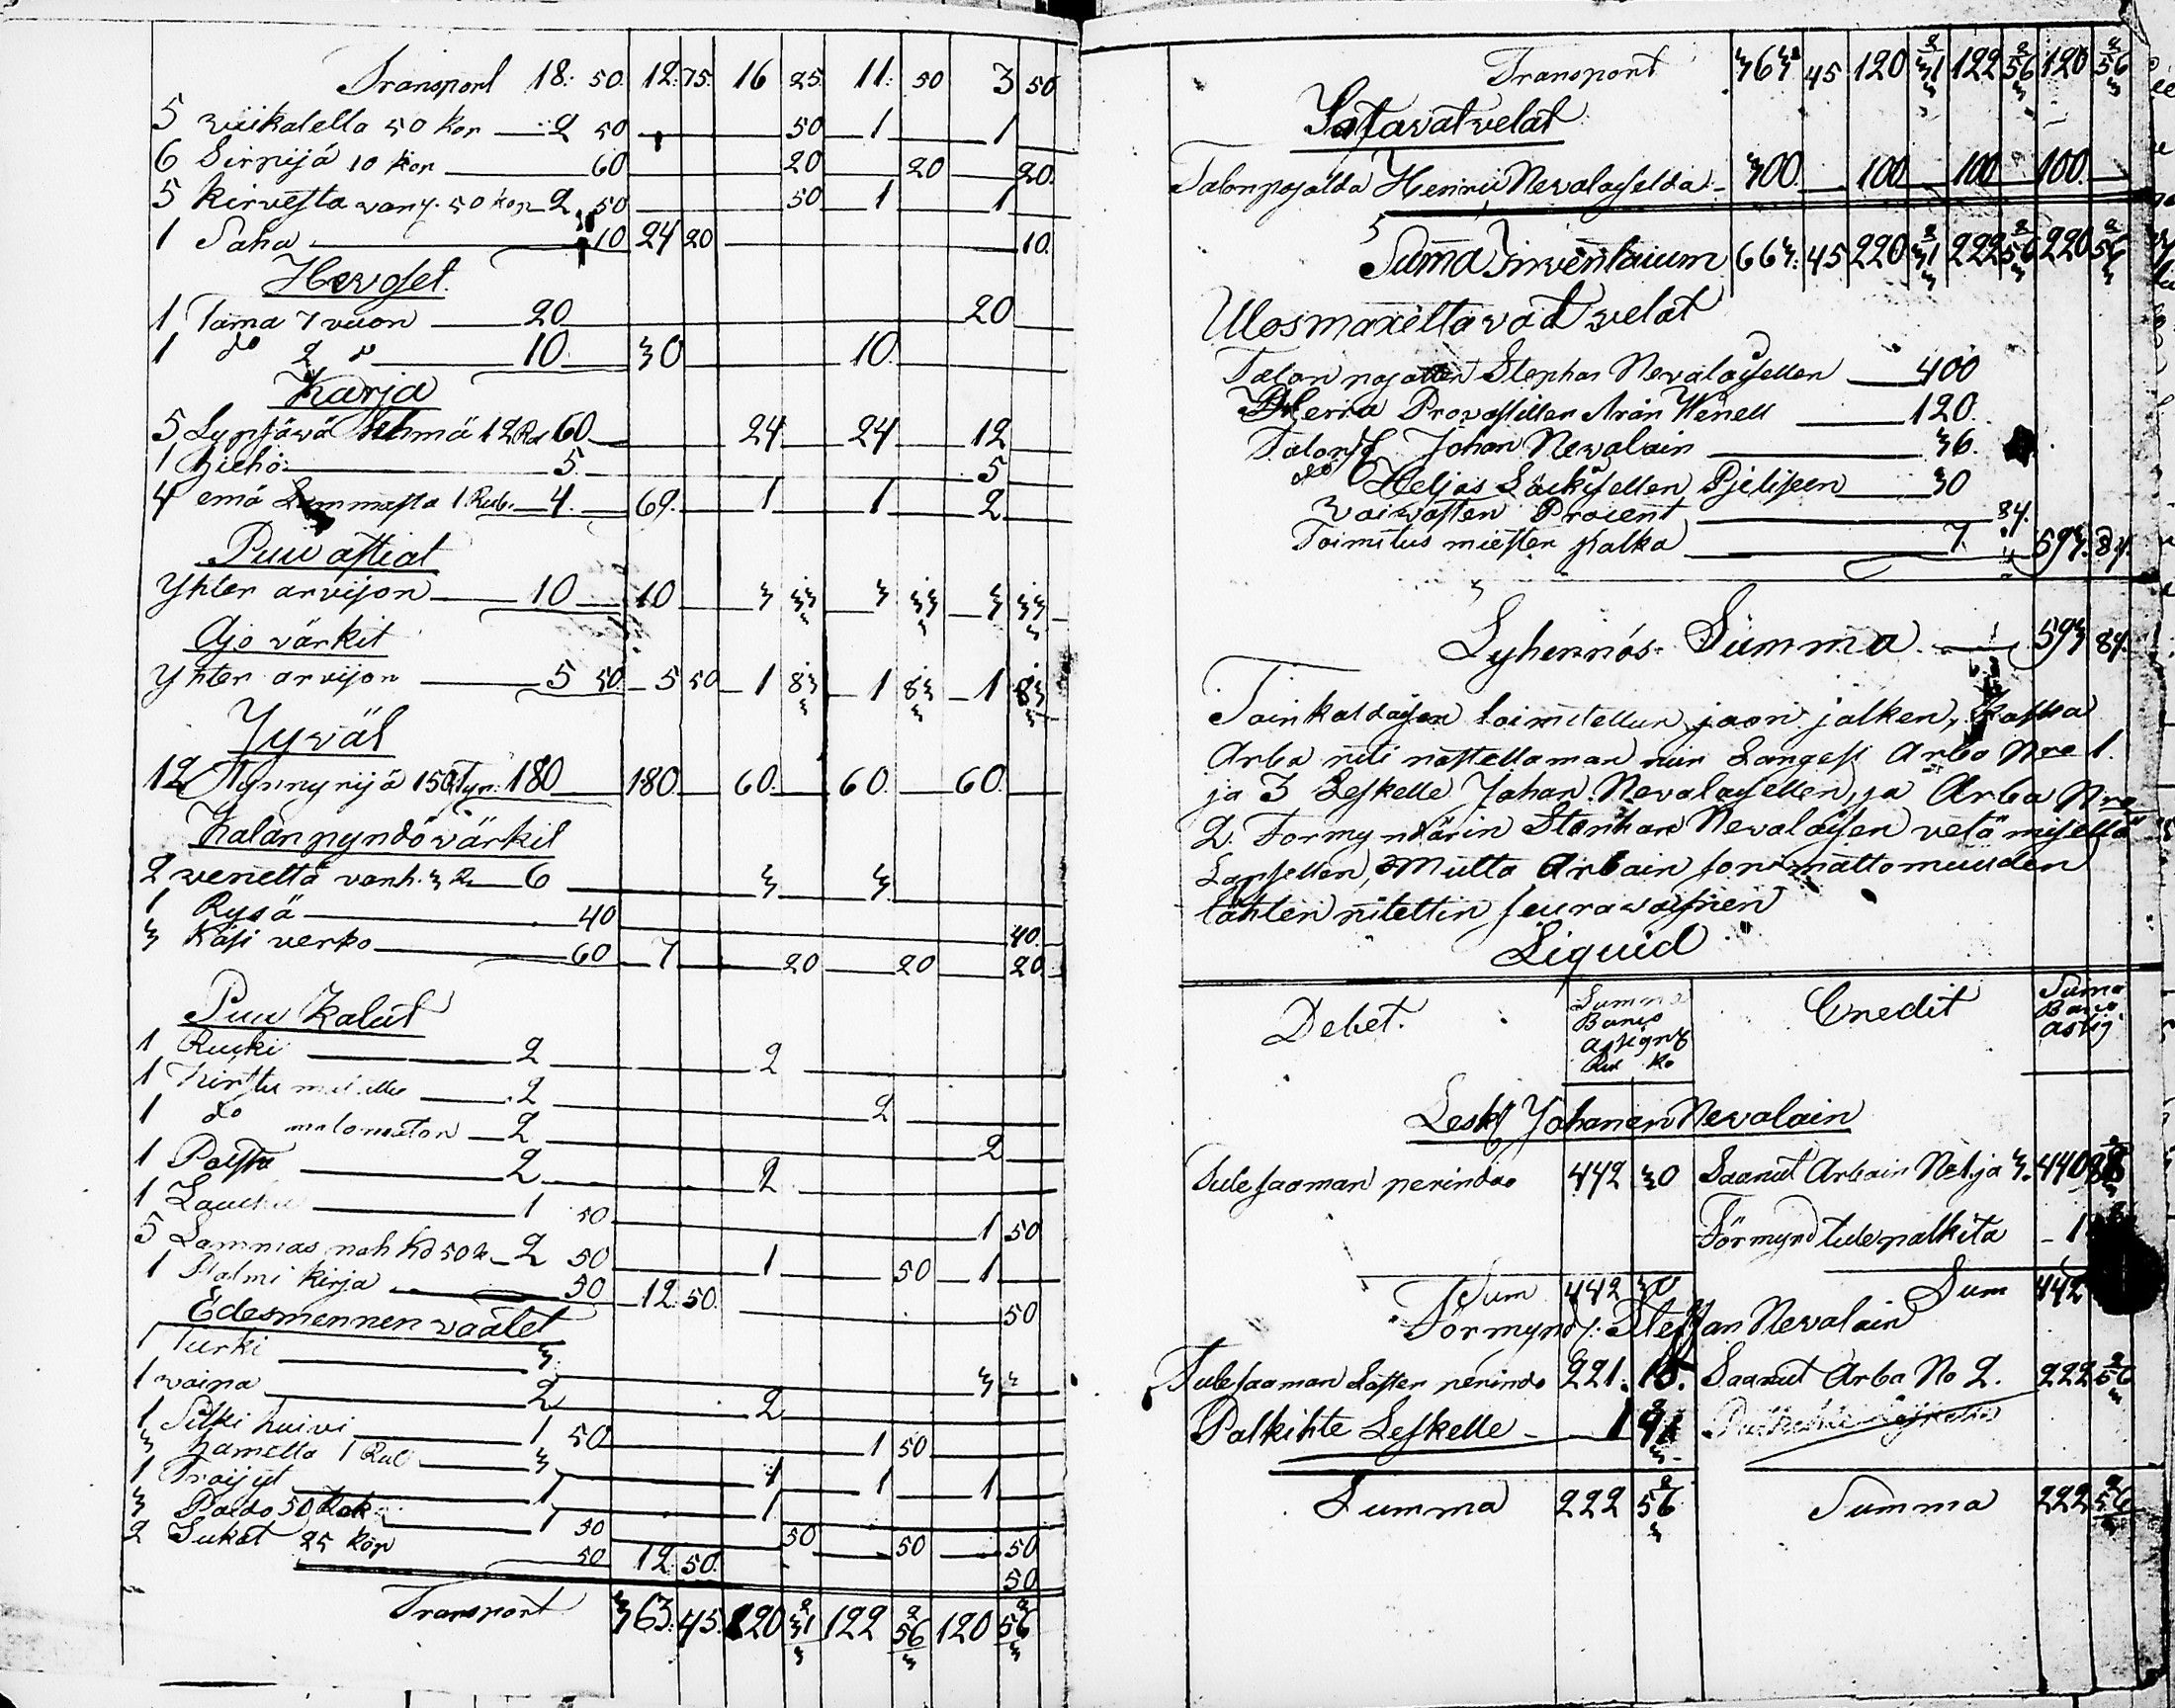 Transport 18: 50. 12: 75. 16 25 11: 50 3 50
5 wiikatetta 50 Kop 2 50 50 1 1
6 Sirpijä 10 Kop 60 20 20 20.
5 Kirvesta 50 Kop 2. 50 50 1 1
1 Saha 10 24 20 10.
Hevoset.
1 Tama 7 vuon 20 20
1 do 2 do 10. 30 10.
Karja
5 Lypsävä lehmä 12 Rd 60 24 24 12
1 hieho 5. 5
4 emä Lammasta 1 Rub. 4. 69. 1 1 2
Puu astiat
Yhten arvijon 10 10 3 33 3 33 3 33
Ajo värkit
Yhten arvijon 5 50. 5 50 1 83 1 83 1 83
Jyvät
12 Tynnyrijä 15 Tyn: 180 180. 60. 60. 60.
Kalan pyndö värkit
2 venettä vanh. 3 2 6 3 3.
1 Rysä 40 40.
3 Käsi verko 60 7 20 20 20.
Puu Kalut
1 Rucki 2 2
1 Kirstu 2 2
1 do maalomaton 2 2
1 2 2
1 1 50 1 50
5 Lammas nahkd 50 2 50 1 50 1
1 Psalmi Kirja 50 12. 50. 50
Edesmennen vaatet
1 Turki 3 3
1 waipa 2 2
1 Silki huivi 1 50 1 50
3 hametta 1 Rub 3 1 1 1
1 Tröijyt 1 1
3 Paido 50 Kok 1 50 50 50 50
2 Sukat 25 Kop 50 12. 50. 50
Transport 363. 45. 120 2/31/3 122 2/56/3 120 2/56/3
Transport 363 45 120 2/31/3 122 2/56/3 120 2/56/3
Satawat velat
Talonpojalda Henric Nevalaiselda 300. 100 100 100.
Suma Inventarium 663. 45 220 2/31/3 222 2/56/3 220 2/56/3
Ulosmaxettavat velat
Talonpojallen Stephan Nevalaisellen 400
Herra Provastillen Aron Wenell 120.
Talonp Johan Nevalain 36.
do Heljas Säckisellen Pjelisjeen 30
Vaivasten Procent 84.
Toimitus miesten palka 7. 593. 84.
Lyhennös Summa 593 84.
Tainkaldaisen toimitellun jaon jalken, Kaska
Arba niti nostettaman niin Langesi Arba Nro 1.
ja 3 Leskelle Johan Nevalaisellen, ja Arba Nro
2. Formyndärin Stephan Nevalaisen vetämisellä
Lapsellen, Mutta Arbain sopimattomuuden
tähten nitettin seurawainen
Liquid
Debet. Summa Banco Assignt Rub Ko Credit Suma Banco Assig
Lesk Johanan Nevalain
Tule saaman perindö 442 30 Saanut Arbain No 1 ja 3. 440
Förmynd tule palkita 1
Sum 442 30 Sum 442
Förmynd: Steffan Nevalain
Tule saaman Lasten perindö 221. 15. Saanut Arba No 2. 222 2/56
Palkihte Leskelle 1 2/41/3
Summa 222 2/56/3 Summa 222 2/56/3